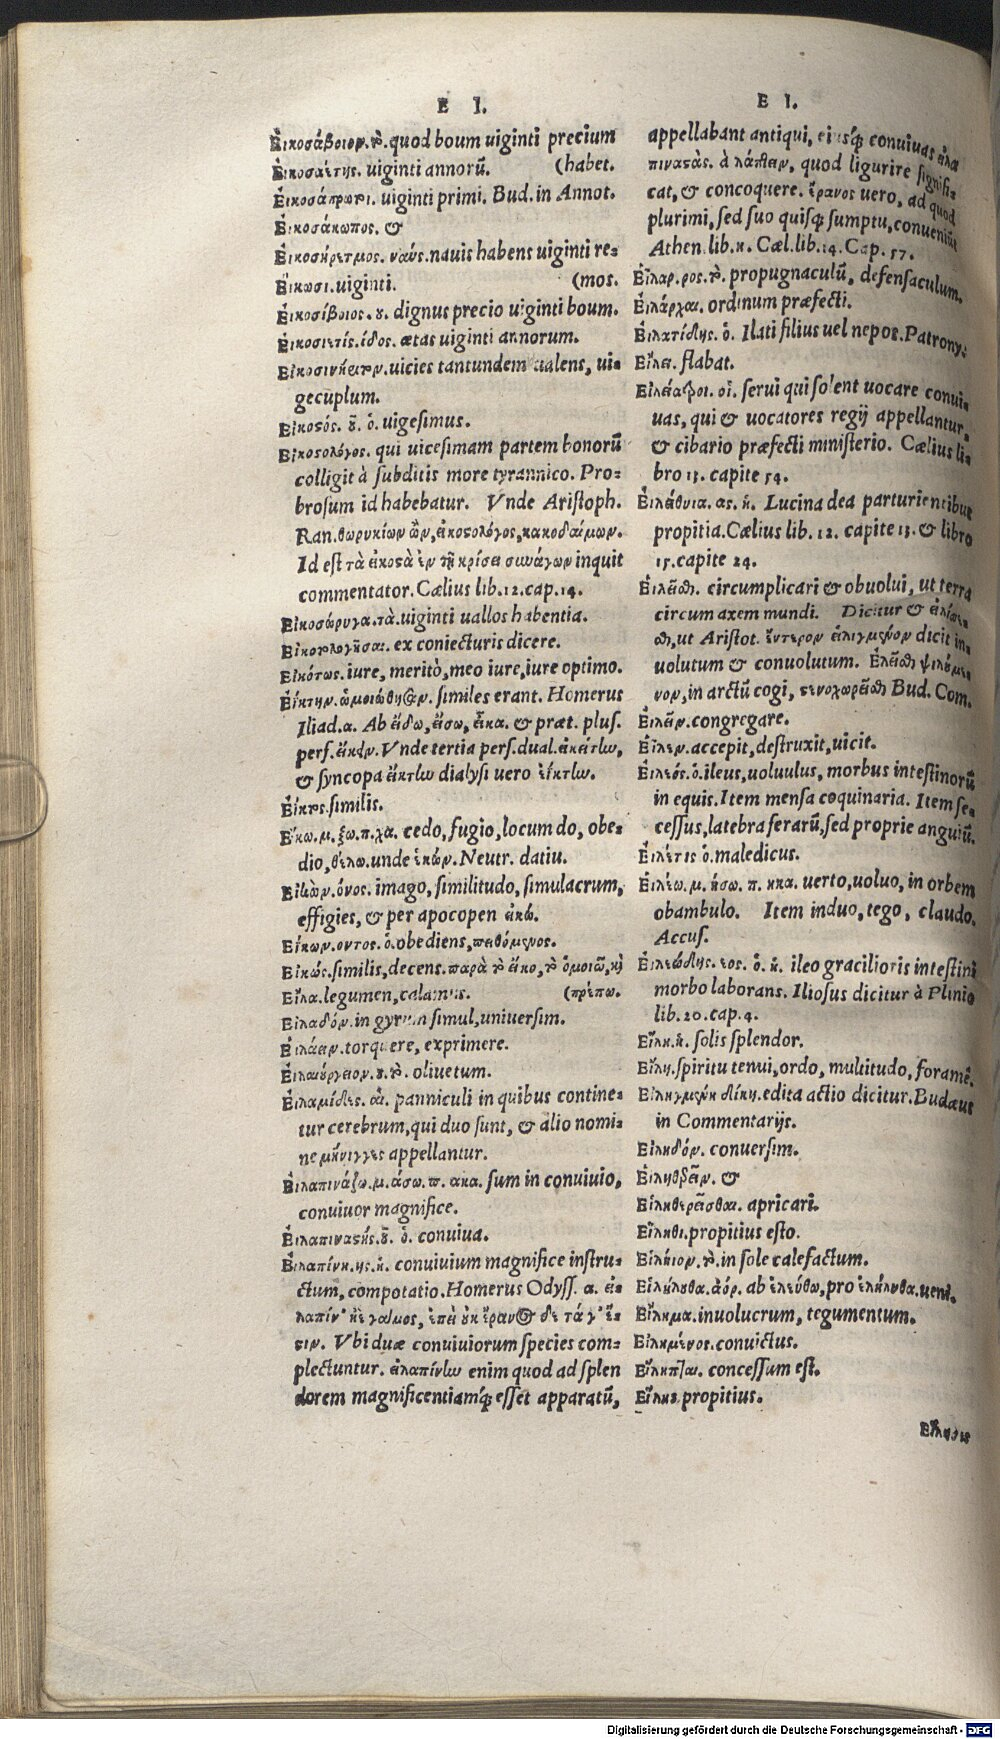 E I.
Εἰκοσάβοιον. τὸ. quod boum uiginti precium
Εἰκοσαέτης. uiginti annorũ. (habet.
Εἰκοσάπρωτοι. uiginti primi. Bud. in Annot.
Εἰκοσάκωπος. &
Εἰκοσήρετμος. ναῦς. nauis habens uiginti re=
Εἴκωσι. uiginti. (mos.
Εἰκοσίβοιος. ου. dignus precio uiginti boum.
Εἰκοσιετίς. ίδος. ætas uiginti annorum.
uicies tantundem ualens, ui=
gecuplum.
Εἰκοστός. οῦ. ὁ. uigesimus.
Εἰκοστολόγος. qui uicesimam partem bonorũ
colligit à subditis more tyrannico. Pro=
brosum id habebatur. Vnde Aristoph.
Ran. θωρυκίων ὢν, εἰκοστολόγος, κακοδαίμων.
Id est τὰ εἰκοστὰ ἐν τῇ κρίσει συνάγων inquit
commentator. Cælius lib. 12. cap. 14.
Εἰκοσώρυγα. τὰ. uiginti uallos habentia.
Εἰκοτολογῆσαι. ex coniecturis dicere.
Εἰκότως. iure, meritò, meo iure, iure optimo.
Εἴκτην. ὡμοιώθησαν. similes erant. Homerus
Iliad. α. Ab εἴδω, εἴσω, εἶκα. & præt. plus.
perf. εἴκειν. Vnde tertia pers. dual. εἰκείτην,
& syncopa εἴκτην dialysi uero ἐΐκτην.
Εἰκτός. similis.
Εἴκω. μ. ξω. π. χα. cedo, fugio, locum do, obe=
dio, θέλω. unde ἑκών. Neutr. datiu.
Εἰκὼν. όνος. imago, similitudo, simulacrum,
effigies, & per apocopen εἰκώ.
Εἴκων. οντος. ὁ. obediens, πειθόμενος.
Εἰκώς. similis, decens. παρὰ τὸ εἴκο, τὸ ὁμοιῶ, καὶ
Εἴλα. legumen, calamus. (πρέπω.
Εἰλαδόν. in gyrum simul, uniuersim.
Εἰλάειν. torquere, exprimere.
Εἰλαιύργειον. ου. τὸ. oliuetum.
Εἰλαμίδες. αἱ. panniculi in quibus contine=
tur cerebrum, qui duo sunt, & alio nomi=
ne μήνιγγες appellantur.
Εἰλαπινάζω. μ. άσω. π. ακα. sum in conuiuio,
conuiuor magnifice.
Εἰλαπιναστής. οῦ. ὁ. conuiua.
Εἰλαπίνη. ης. ἡ. conuiuium magnifice instru=
ctum, compotatio. Homerus Odyss. α. εἰ=
λαπίν' ἠὲ γάμος, ἐπεὶ οὐκ ἔρανος δὲ τά γ' ἐ=
στιν. Vbi duæ conuiuiorum species com=
plectuntur. εἰλαπίνην enim quod ad splen
dorem magnificentiamq́; esset apparatũ,
E I.
appellabant antiqui, eiusq́; conuiuas εἰλα
πιναστὰς. à λάπτειν, quod ligurire signifi=
cat, & concoquere. ἔρανος uero, ad quod
plurimi, sed suo quisq; sumptu, conueniũt
Athen. lib. 8. Cæl. lib. 14. Cap. 57.
Εἶλαρ. ρος. τὸ. propugnaculũ, defensaculum.
Εἰλάρχαι. ordinum præfecti.
Εἰλατίδης. ὁ. Ilati filius uel nepos. Patrony.
Εἴλει. flabat.
Εἰλέατροι. οἱ. serui qui solent uocare conui=
uas, qui & uocatores regij appellantur,
& cibario præfecti ministerio. Cælius li=
bro 13. capite 54.
Εἰλείθυια. ας. ἡ. Lucina dea parturientibus
propitia. Cælius lib. 12. capite 13. & libro
15. capite 24.
Εἰλεῖσθαι. circumplicari & obuolui, ut terra
circum axem mundi. Dicitur & εἰλίσσε=
σθαι, ut Aristot. ἔντερον εἰλιγμένον dicit in=
uolutum & conuolutum. Εἰλεῖσθαι ψιλόμε=
νον, in arctũ cogi, στενοχωρεῖσθαι Bud. Com.
Εἰλεῖν. congregare.
Εἷλεν. accepit, destruxit, uicit.
Εἰλεός. ὁ. ileus, uoluulus, morbus intestinorũ
in equis. Item mensa coquinaria. Item se=
cessus, latebra ferarũ, sed proprie anguiũ.
Εἰλέτις ὁ. maledicus.
Εἰλέω. μ. ήσω. π. ηκα. uerto, uoluo, in orbem
obambulo. Item induo, tego, claudo.
Accus.
Εἰλεώδης. εος. ὁ. ἡ. ileo gracilioris intestini
morbo laborans. Iliosus dicitur à Plinio
lib. 20. cap. 4.
Εἵλη. ἡ. solis splendor.
Εἴλη. spiritu tenui, ordo, multitudo, foramẽ.
Εἰλιγμένη δίκη. edita actio dicitur. Budæus
in Commentarijs.
Εἰληδόν. conuersim.
Εἰληθεεῖν. &
Εἱληθερεῖσθαι. apricari.
Εἵληθι. propitius esto.
Εἱλήιον. τὸ. in sole calefactum.
Εἰλήλουθα. ἀόρ. ab ἐλεύθω, pro ἐλήλυθα. ueni.
Εἴλημα. inuolucrum, tegumentum.
Εἰλημένος. conuictus.
Εἴληπται. concessum est.
Εἵληος. propitius.
Εἴλησις
Digitalisierung gefördert durch die Deutsche Forschungsgemeinschaft - DFG